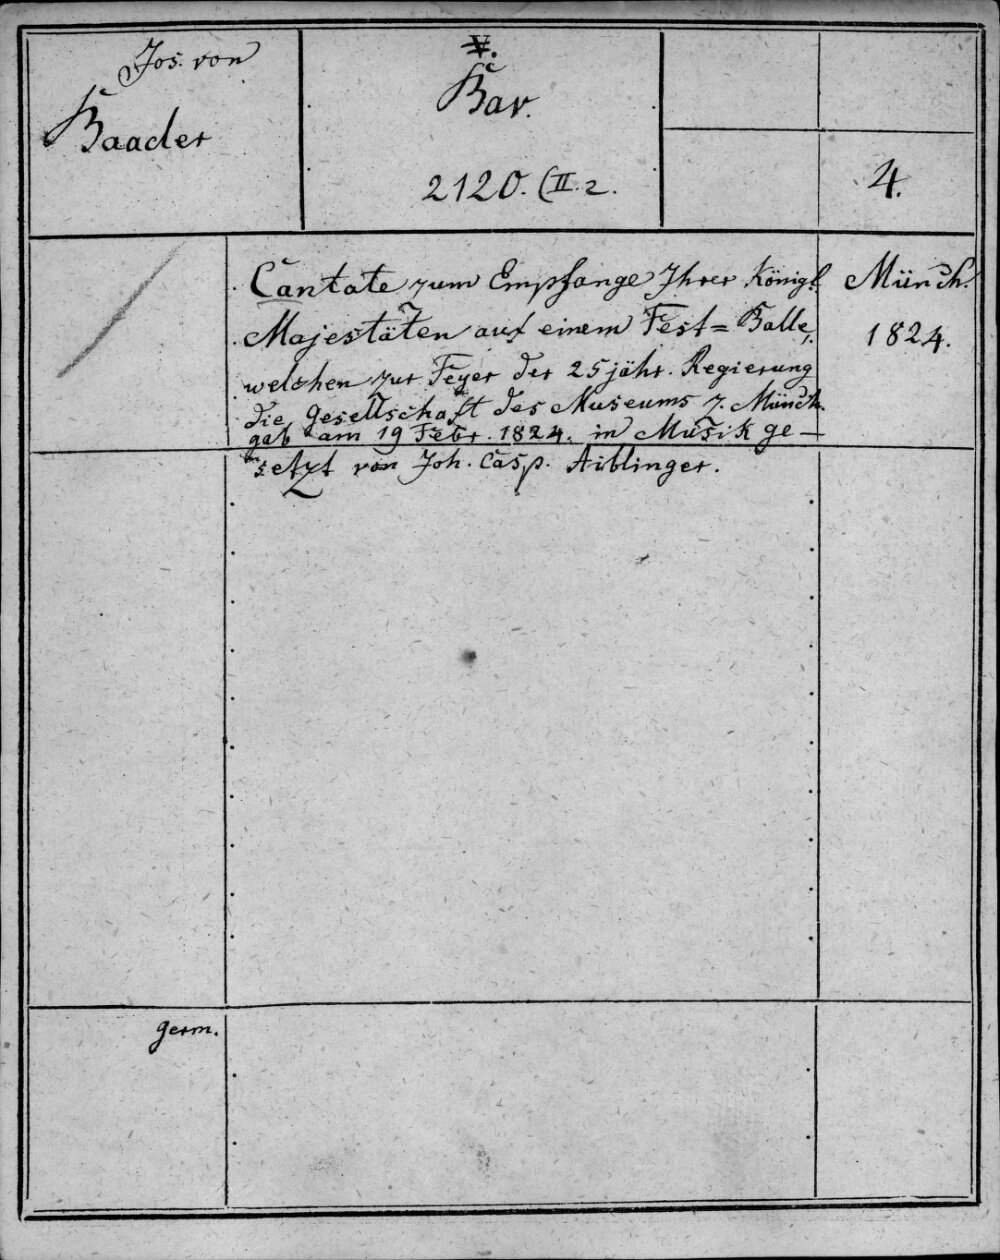 Jos. von
Baader
V.
Bav.
2120. (II. 2.
4.
Cantate zum Empfange Ihrer Königl.
Majestäten auf einem Fest=Balle,
welchen zur Feyer der 25jähr. Regierung
die Gesellschaft des Museums z. Münch.
gab am 19 Febr. 1824. in Musik ge-
setzt von Joh. Casp. Aiblinger.
Münch.
1824.
germ.